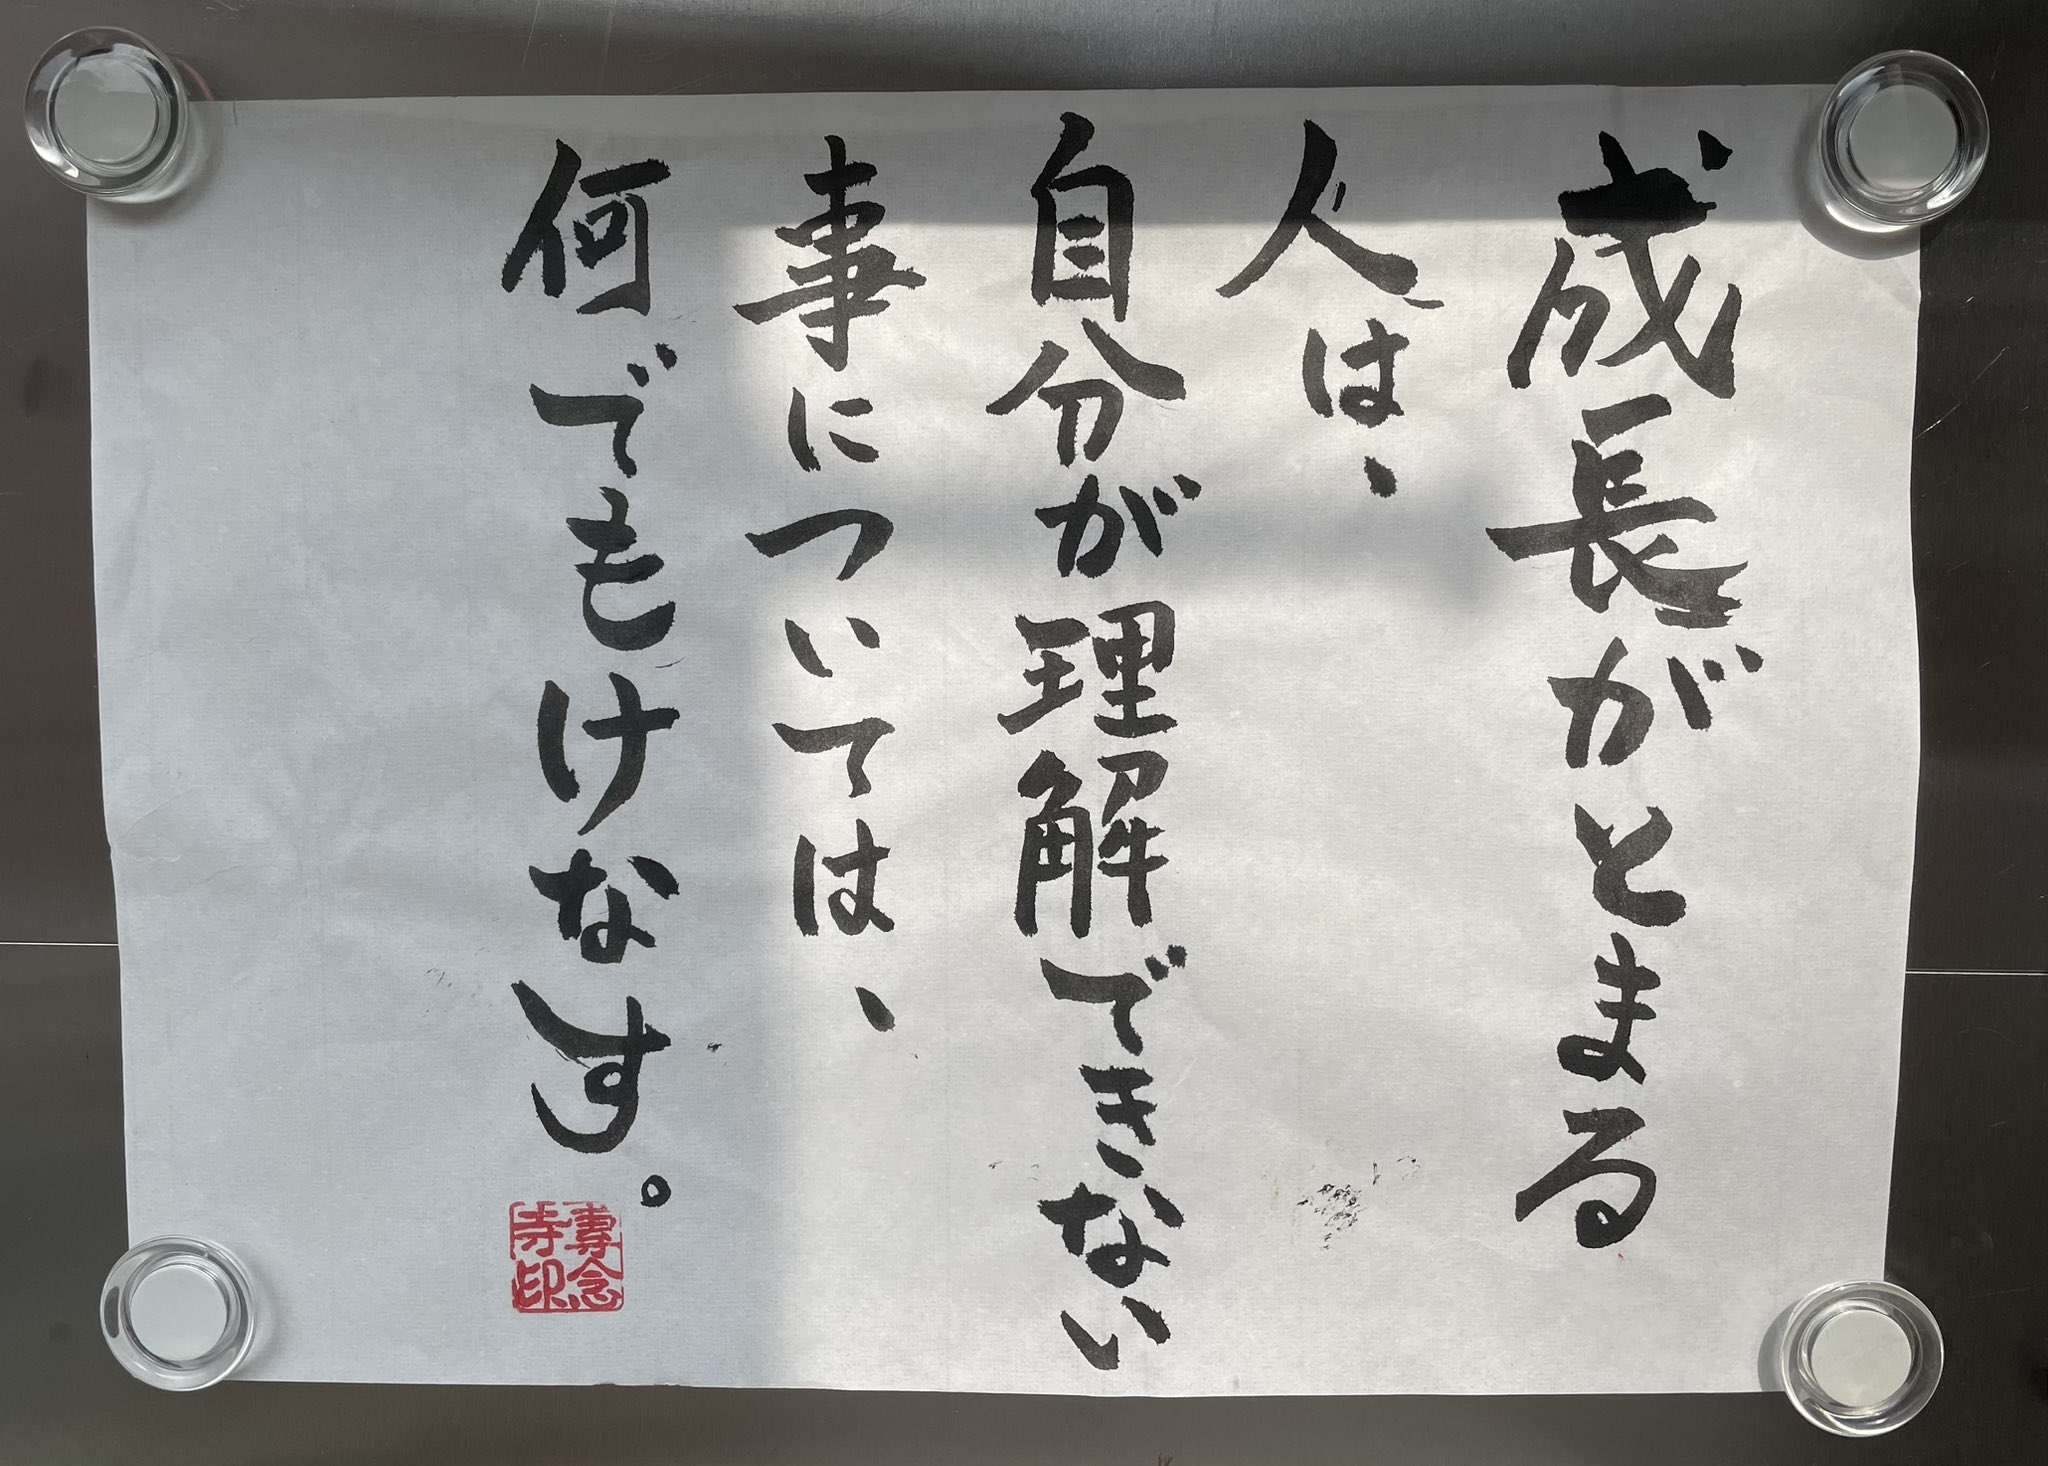 成長がとまる
人は、
自分が理解できない
事については、
何でもけなす。
專念
寺印